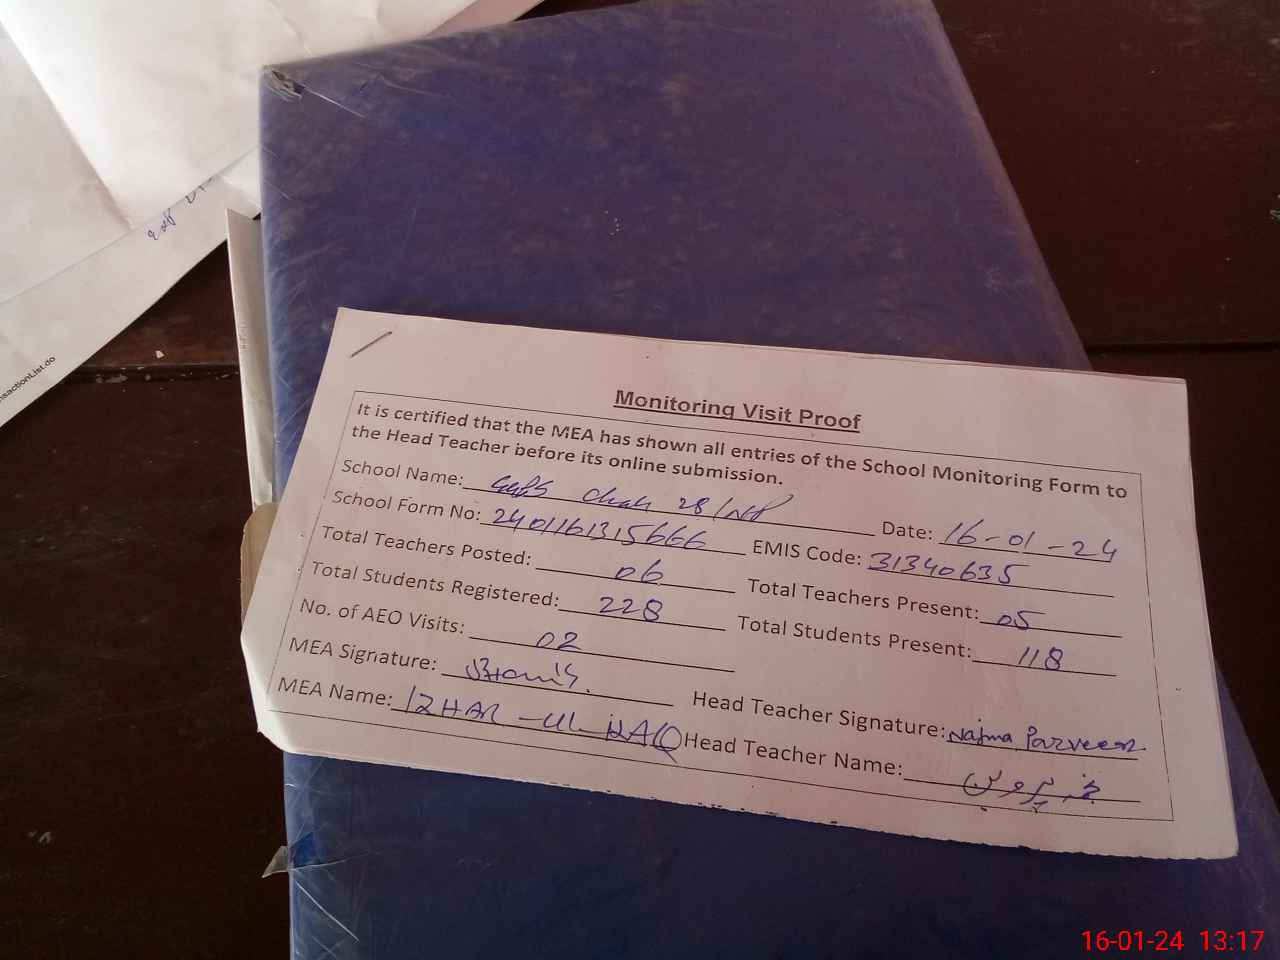 nsactionList.do
Monitoring Visit Proof
It is certified that the MEA has shown all entries of the School Monitoring Form to
the Head Teacher before its online submission.
School Name: GGPS Chak 28/NP Date: 16-01-24
School Form No: 2401161315666 EMIS Code: 31340635
Total Teachers Posted: 06 Total Teachers Present: 05
Total Students Registered: 228 Total Students Present: 118
No. of AEO Visits: 02
MEA Signature: Head Teacher Signature: Najma Parveen
MEA Name: IZHAR-UL-HAQ Head Teacher Name: نجمہ پروین
16-01-24 13:17